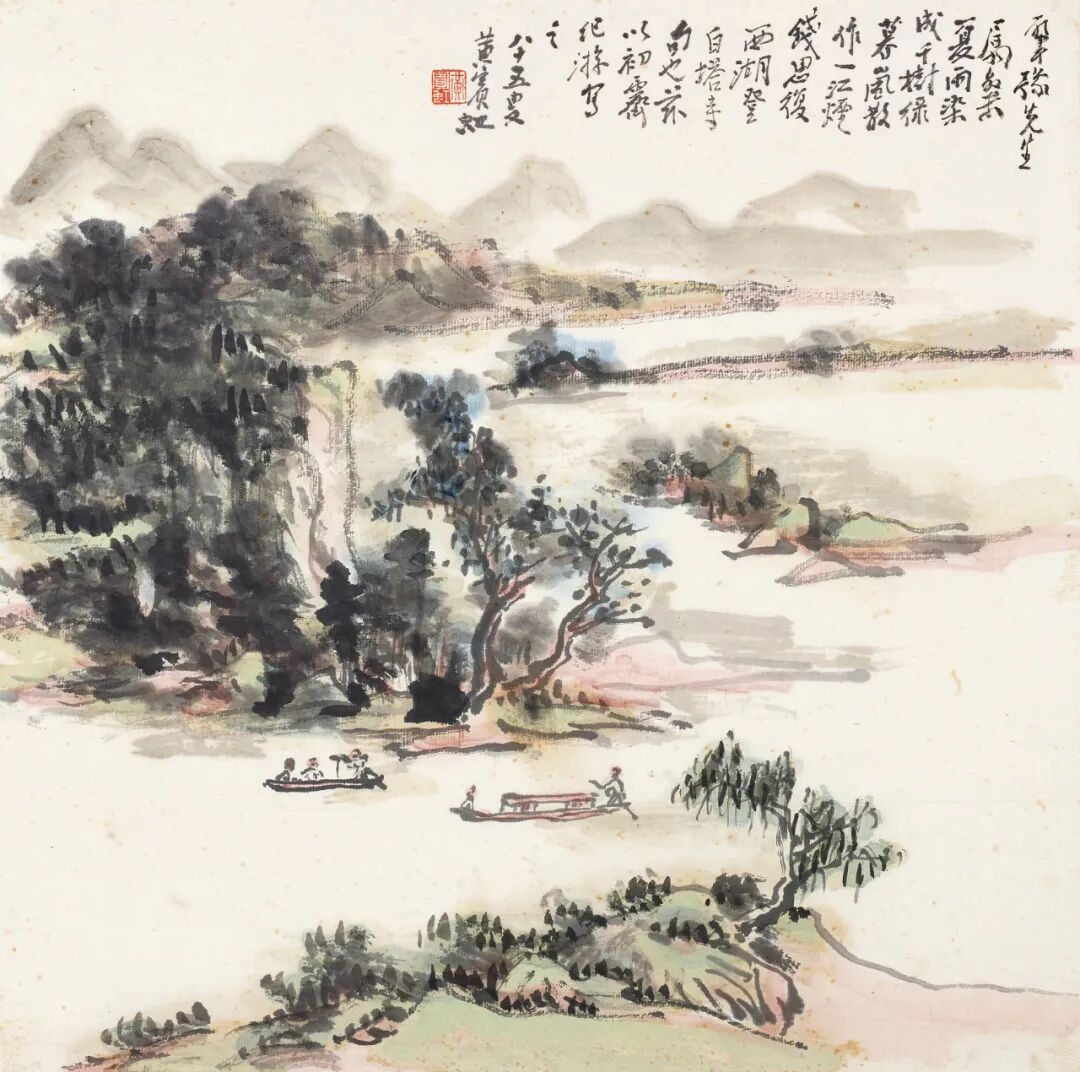 豫先生
屬粲
夏雨染
成千樹綠
暮嵐散
作一江煙
錢思復
西湖登
白塔寺
句也茲
以初霽
紀游寫
之
八十五叟
黃賓虹